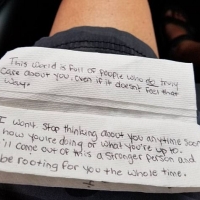 This world is full of people who do truly
care about you. Even if it doesn't feel that
way.
I won't stop thinking about you anytime soon
how you're doing or what you're up to.
'll come out of this a stronger person and
be rooting for you the whole time.